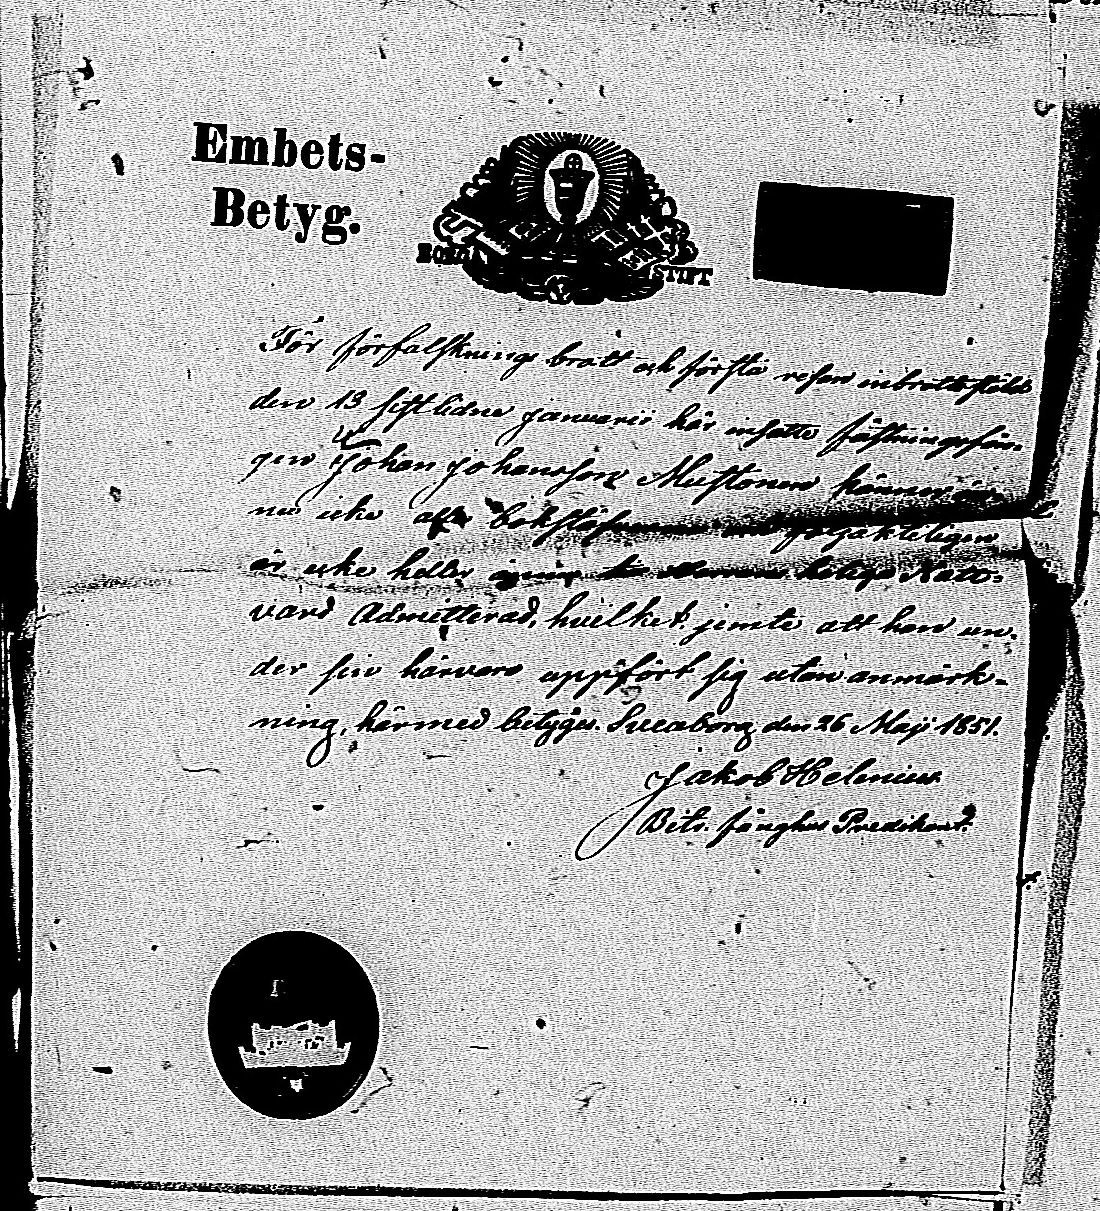 Embets-
Betyg.
BORGÅ STIFT
För förfalsknings brott och första resan inbrottsstöld
den 13 sistlidne Januarii här insatte fästningsfån-
gen Johan Johansson Mustonen känner
nu icke alla bokstäfverna
är icke heller Herrans heliga Natt-
vard Admitterad, hvilket jemte att han un-
der sin härvaro uppfört sig utan anmärk-
ning, härmed betygas. Sveaborg den 26 Maji 1851.
Jakob Helenius
Bitr. fånghus Predikant.